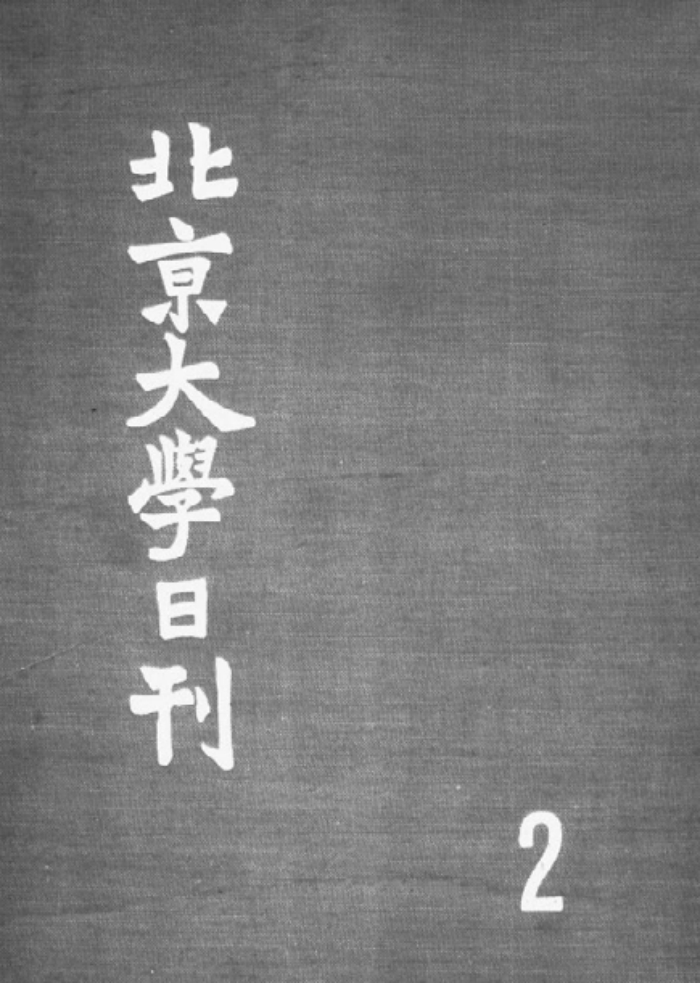 北京大學日刊
2